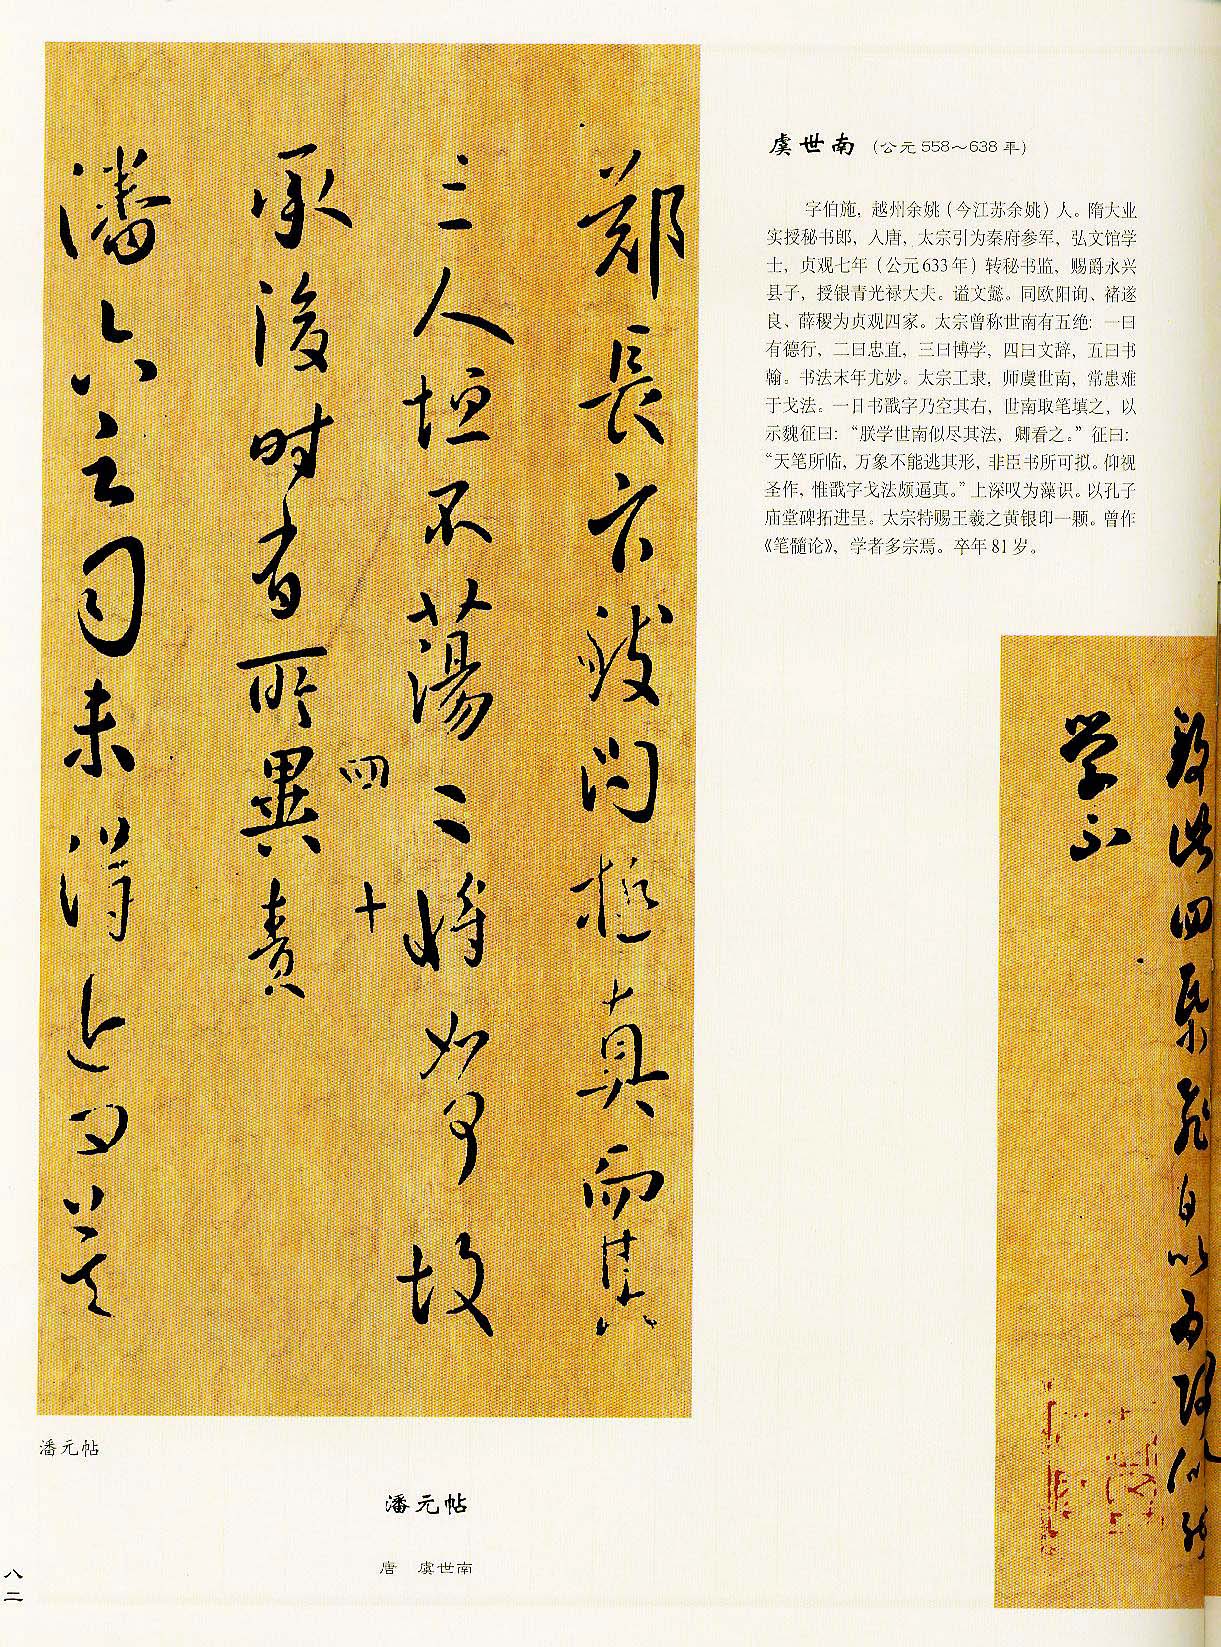 虞世南 (公元558～638年)
字伯施，越州余姚（今江苏余姚）人。隋大业
实授秘书郎，入唐，太宗引为秦府参军，弘文馆学
士，贞观七年（公元633年）转秘书监，赐爵永兴
县子，授银青光禄大夫。谥文懿。同欧阳询、褚遂
良、薛稷为贞观四家。太宗曾称世南有五绝：一曰
有德行，二曰忠直，三曰博学，四曰文辞，五曰书
翰。书法末年尤妙。太宗工隶，师虞世南，常患难
于戈法。一日书戬字乃空其右，世南取笔填之，以
示魏征曰：“朕学世南似尽其法，卿看之。”征曰：
“天笔所临，万象不能逃其形，非臣书所可拟。仰视
圣作，惟戬字戈法颇逼真。”上深叹为藻识。以孔子
庙堂碑拓进呈。太宗特赐王羲之黄银印一颗。曾作
《笔髓论》，学者多宗焉。卒年81岁。
致此四紙飛白以為何似能
学不
鄭長官致問極真而其
三人恒不蕩二將如何故
四十
承後時有所異責
潘六云司未得近問莫
潘元帖
潘元帖
唐 虞世南
八二